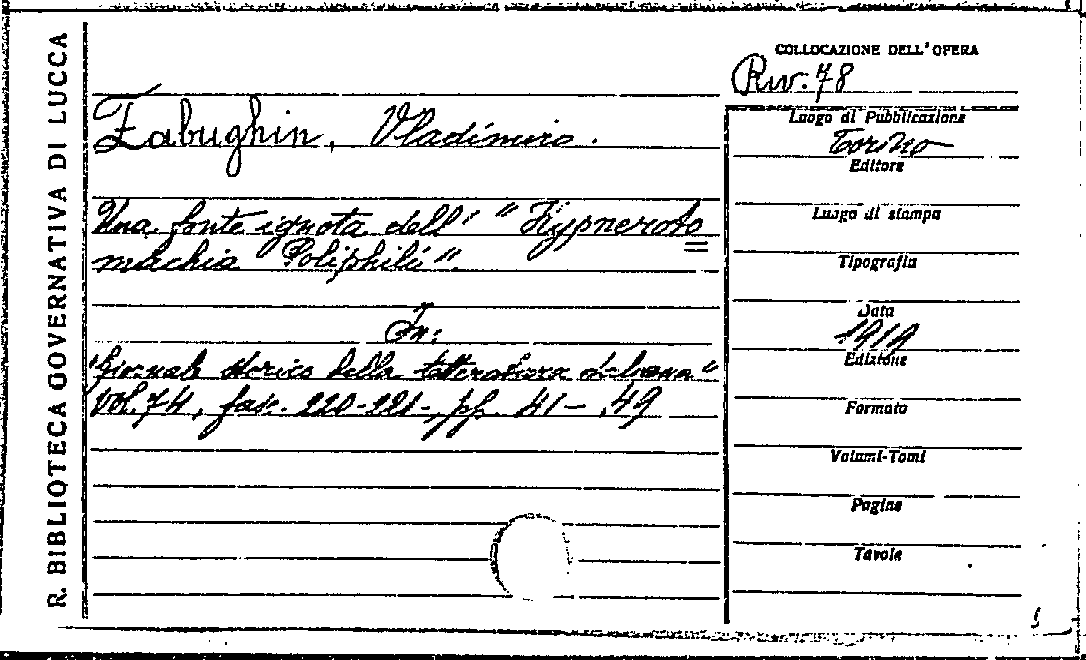 R. BIBLIOTECA GOVERNATIVA DI LUCCA
COLLOCAZIONE DELL'OPERA
Riv. 78
Zabughin, Vladimiro.
Una fonte ignota dell' "Hypneroto=
machia Poliphili".
In:
"Giornale storico della letteratura italiana"
Vol. 74, fasc. 220-221-, pp. 41-49
Luogo di Pubblicazione
Torino
Editore
Luogo di stampa
Tipografia
Data
1919
Edizione
Formato
Volumi-Tomi
Pagine
Tavole